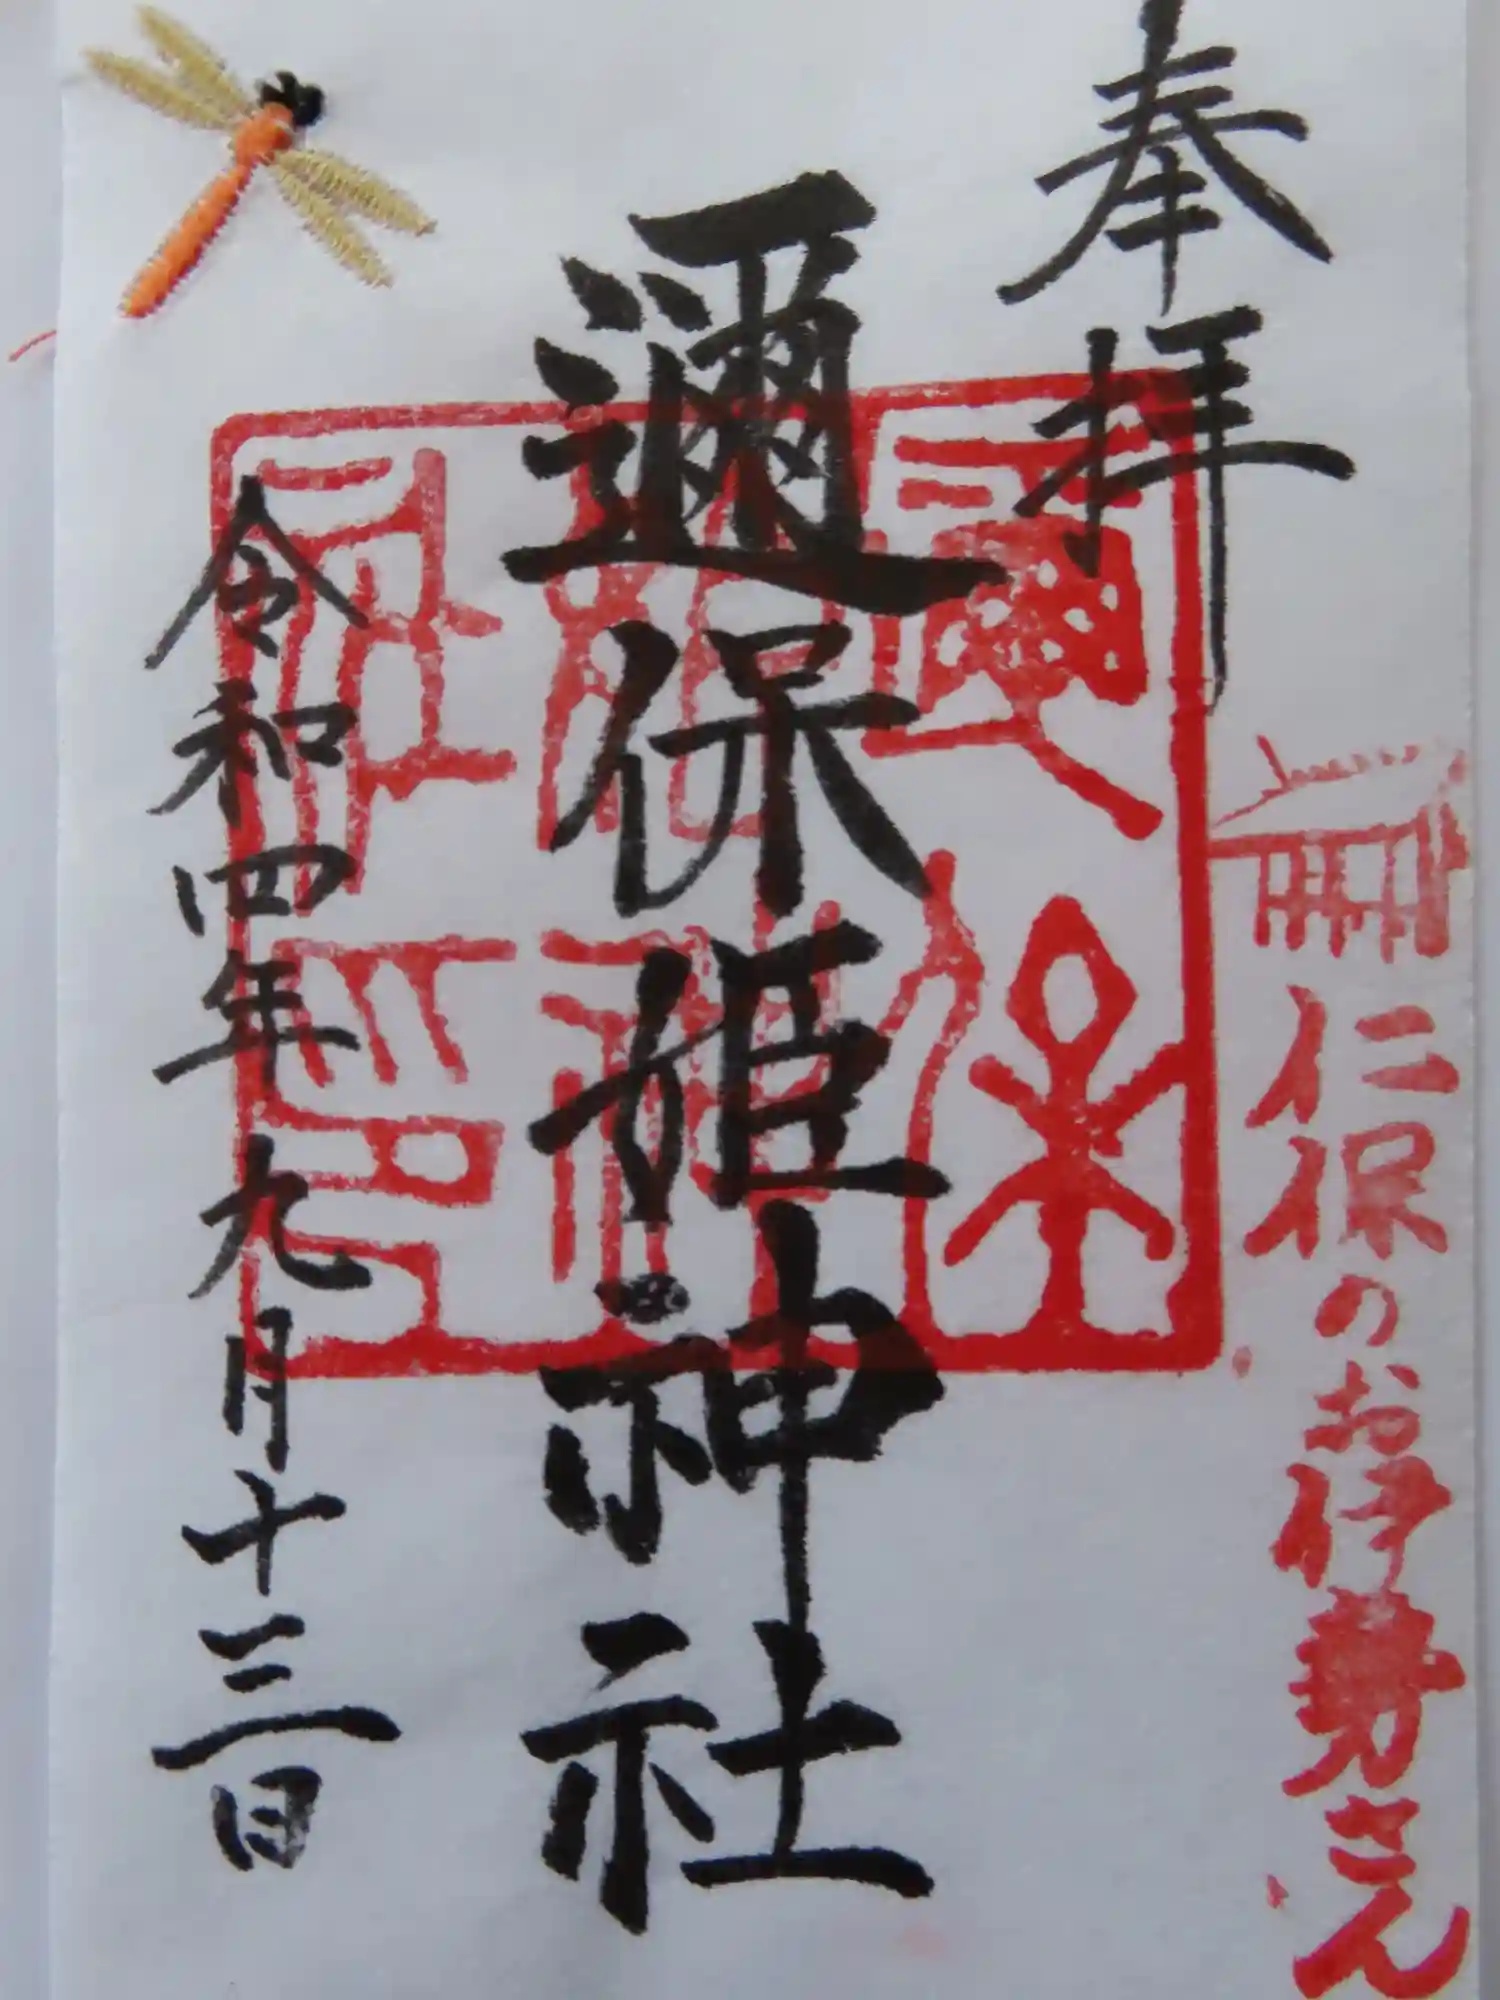 奉拝
仁保のお伊勢さん
邇保姫神社
邇保姫神社印
令和四年九月十三日